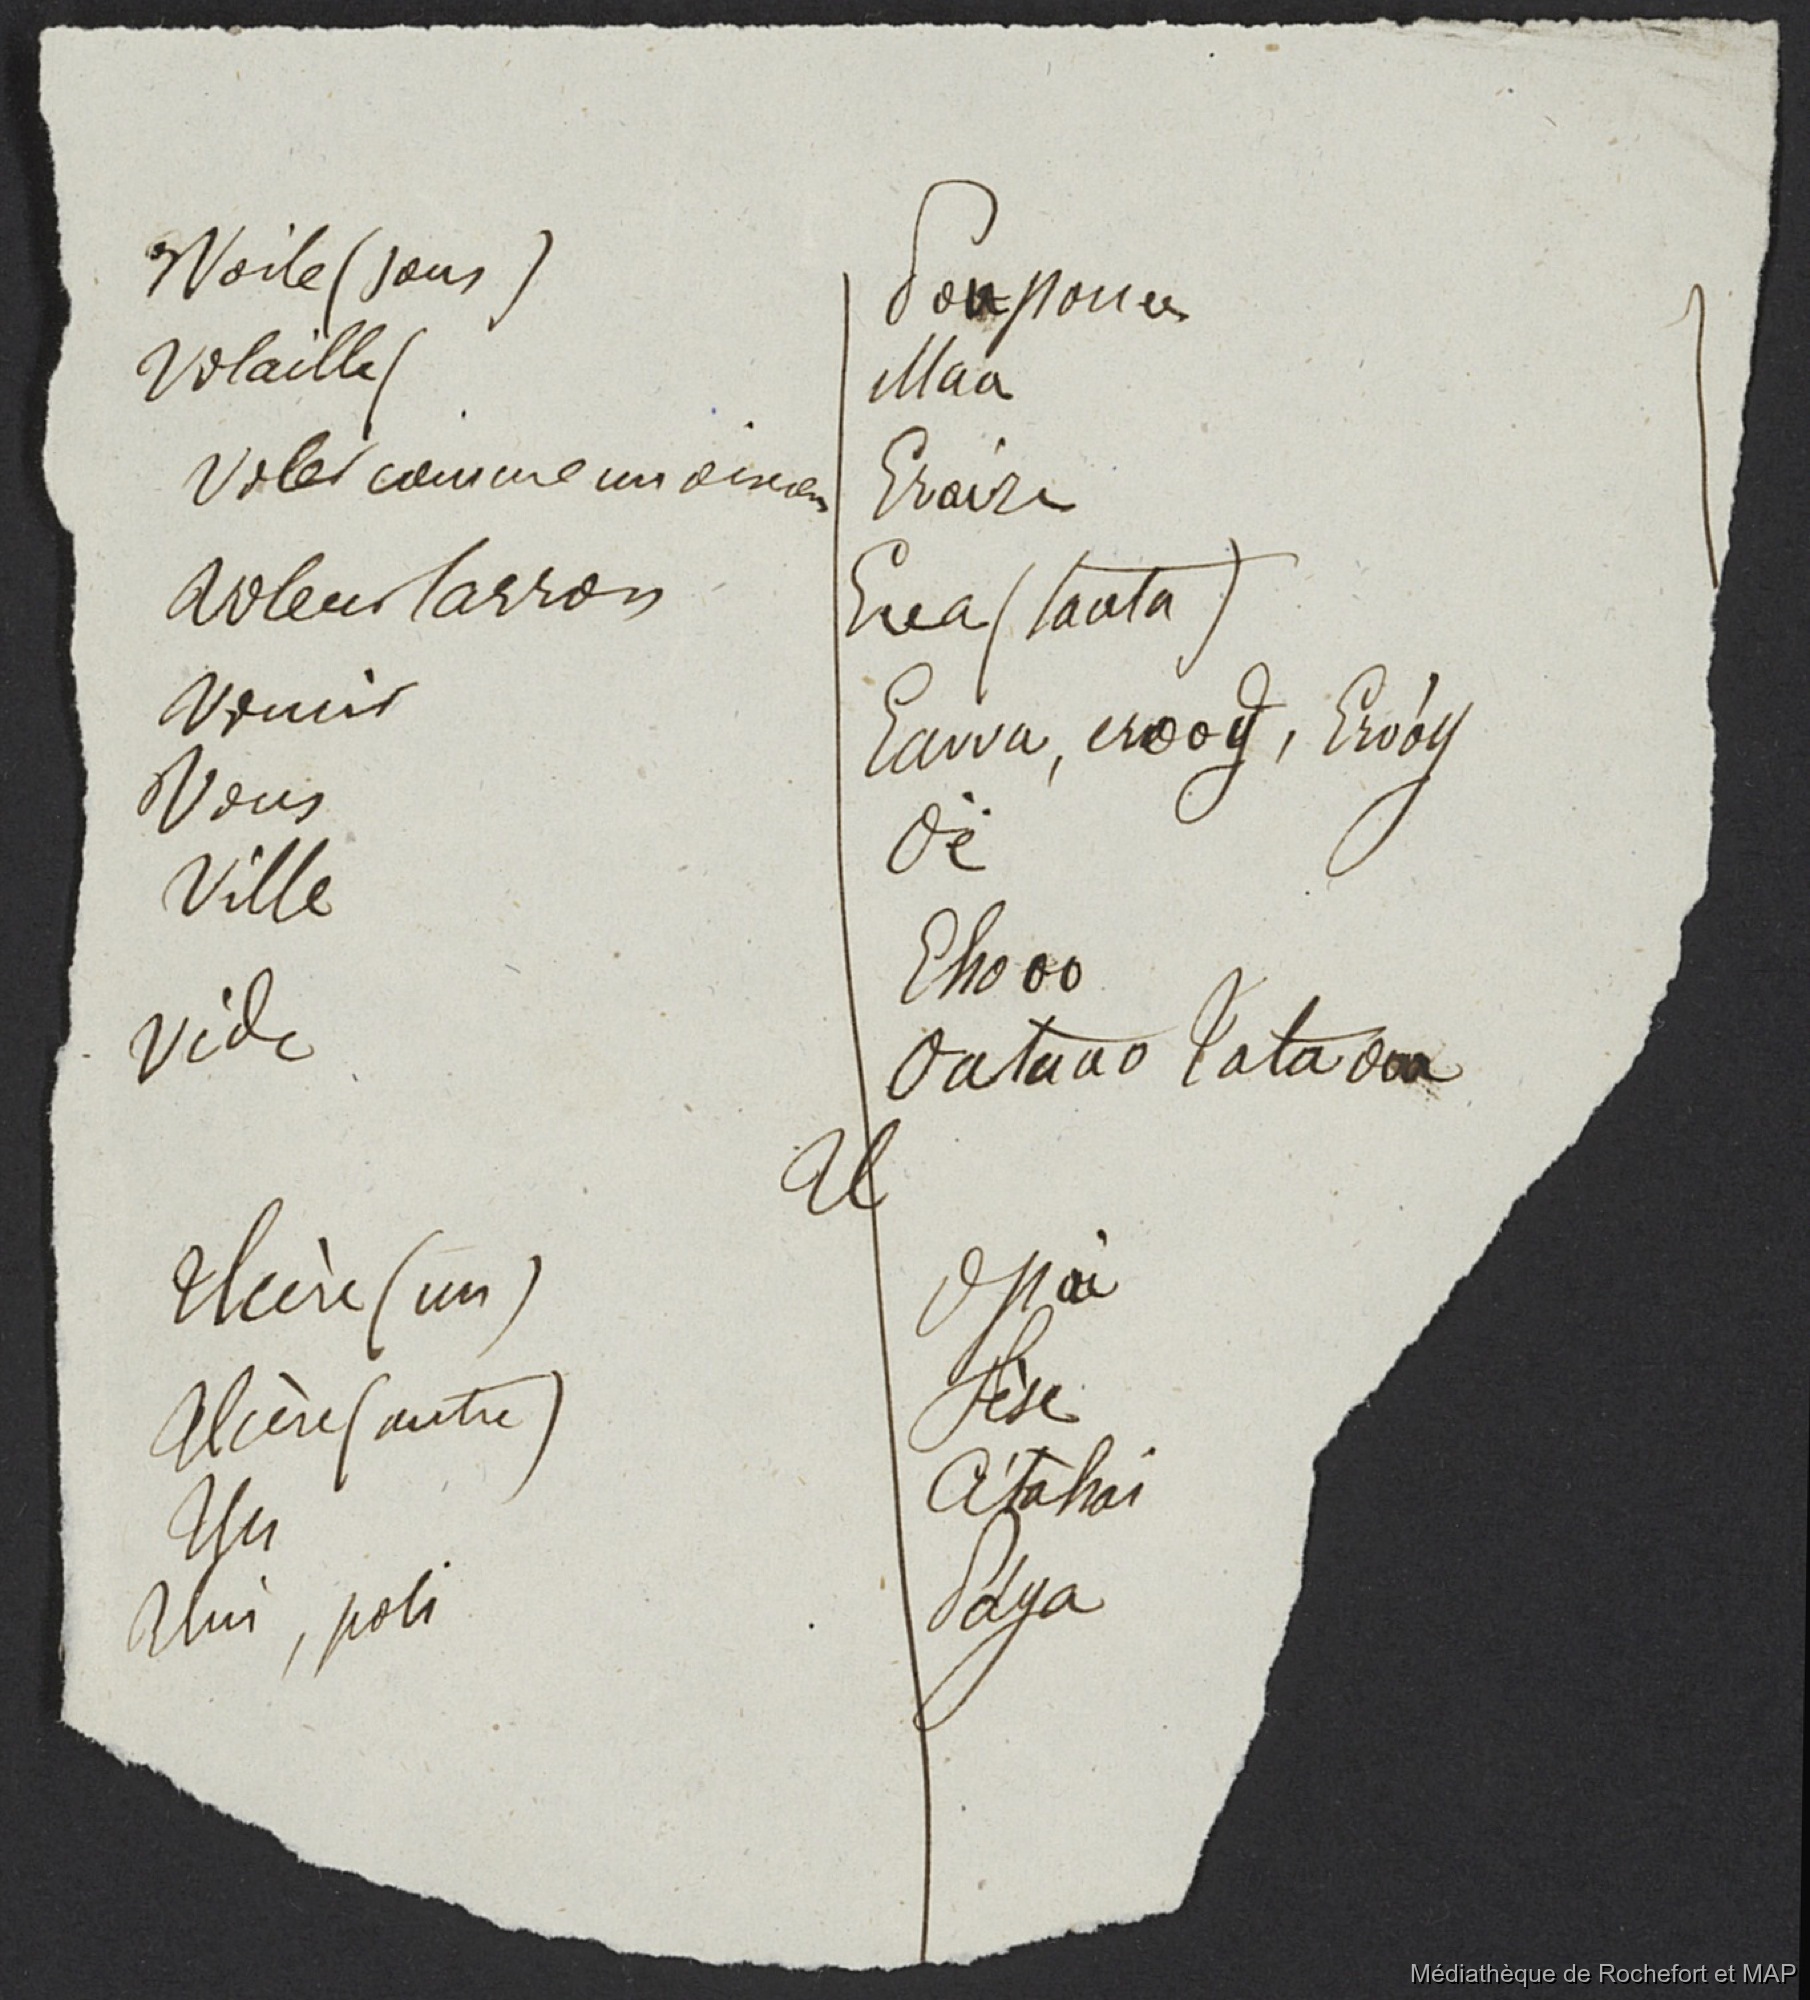 Voile (sous) Poupouee
Volaille ( Maa
Voler comme un oiseau Eraire
Voleur larron Eeea (taata)
Vomir Eawa, erooy, Eróóy
Vous Oë
Ville Ehooo
Vide Oatuao Tata ooa
U
Ulcère (un) Opai
Ulcère (autre) Fèse
Un Atahai
Uni, poli Pdya
Médiathèque de Rochefort et MAP